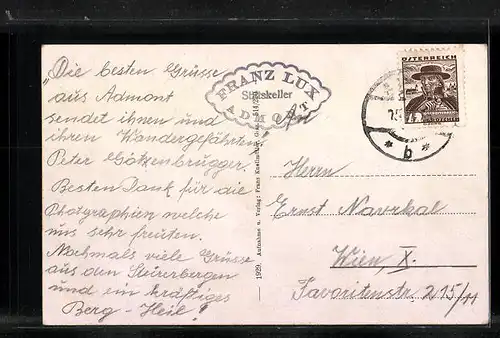 "Die besten Grüsse
aus Admont
sendet ihnen und
ihren Wandergefährten
Peter Gotzenbrugger.
Besten Dank für die
Photgraphien welche
uns sehr freuten.
Nochmals viele Grüsse
aus den Steirerbergen
und ein kräftiges
Berg-Heil!
FRANZ LUX
Stiftskeller
ADMONT
1929 Aufnahme u. Verlag: Franz Knollmüller, Graz
ÖSTERREICH
* b *
Herrn
Ernst Navrkal
Wien, X.
Favoritenstr. 215/11